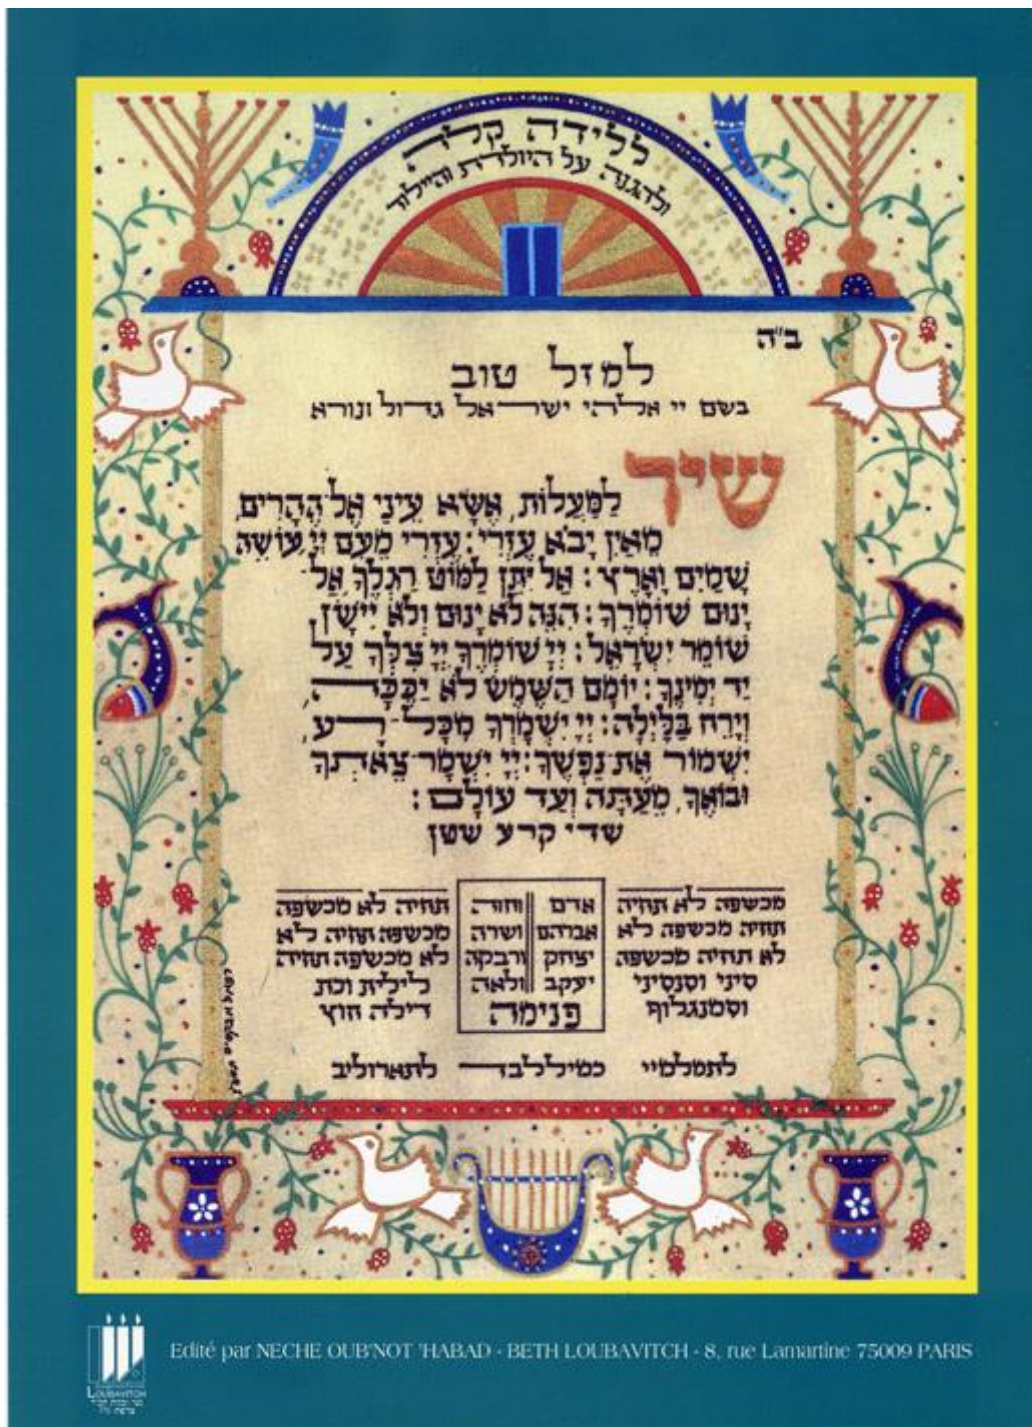 ללידה קלה
ולהגנה על היולדת והיילוד
ב"ה
למזל טוב
בשם יי אלהי ישראל גדול ונורא
שיר
לַמַּעֲלוֹת, אֶשָּׂא עֵינַי אֶל הֶהָרִים,
מֵאַיִן יָבֹא עֶזְרִי: עֶזְרִי מֵעִם יְיָ, עוֹשֵׂה
שָׁמַיִם וָאָרֶץ: אַל יִתֵּן לַמּוֹט רַגְלֶךָ, אַל
יָנוּם שׁוֹמְרֶךָ: הִנֵּה לֹא יָנוּם וְלֹא יִישָׁן,
שׁוֹמֵר יִשְׂרָאֵל: יְיָ שׁוֹמְרֶךָ יְיָ צִלְּךָ עַל
יַד יְמִינֶךָ: יוֹמָם הַשֶּׁמֶשׁ לֹא יַכֶּכָּה,
וְיָרֵחַ בַּלָּיְלָה: יְיָ יִשְׁמָרְךָ מִכָּל רָע,
יִשְׁמוֹר אֶת נַפְשֶׁךָ: יְיָ יִשְׁמָר צֵאתְךָ
וּבוֹאֶךָ, מֵעַתָּה וְעַד עוֹלָם:
שדי קרע שטן
מכשפה לא תחיה
תחיה מכשפה לא
לא תחיה מכשפה
סיני וסנסיני
וסמנגלוף
אדם וחוה
אברהם ושרה
יצחק ורבקה
יעקב ולאה
פנימה
תחיה לא מכשפה
מכשפה תחיה לא
לא מכשפה תחיה
לילית וכת
דילה חוץ
לתמלמיי כמיללבד לתארוליב
Edité par NECHE OUB'NOT 'HABAD - BETH LOUBAVITCH - 8, rue Lamartine 75009 PARIS
LOUBAVITCH